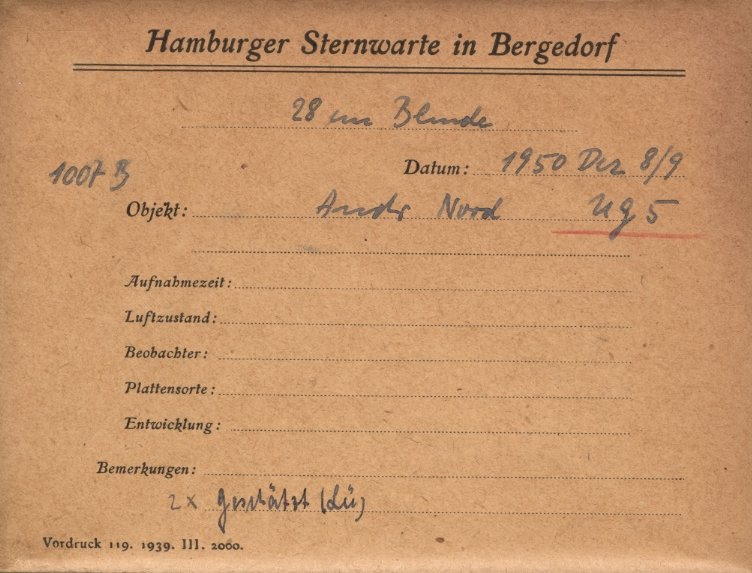 Hamburger Sternwarte in Bergedorf
28 cm Blende
Datum: 1950 Dez 8/9
1007 B
Objekt: Andr Nord UG 5
Aufnahmezeit:
Luftzustand:
Beobachter:
Plattensorte:
Entwicklung:
Bemerkungen:
2x geschätzt (Lü)
Vordruck 119. 1939. III. 2000.